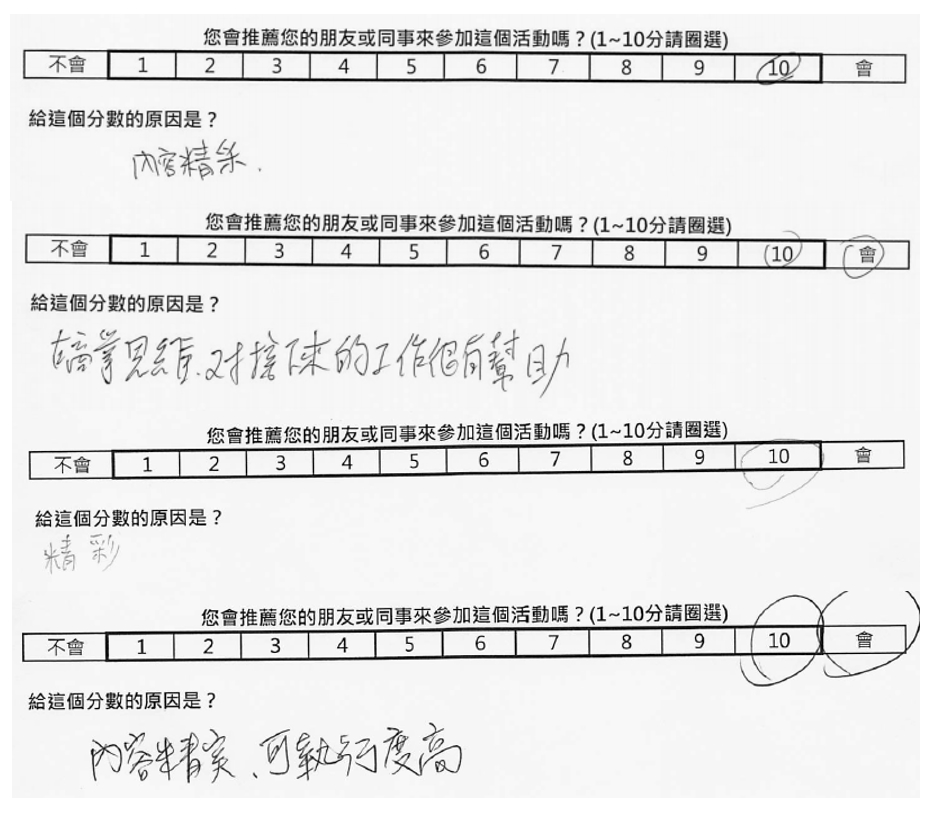 您會推薦您的朋友或同事來參加這個活動嗎？(1~10分請圈選)
不會 1 2 3 4 5 6 7 8 9 10 會
給這個分數的原因是？
內容精采.
您會推薦您的朋友或同事來參加這個活動嗎？(1~10分請圈選)
不會 1 2 3 4 5 6 7 8 9 10 會
給這個分數的原因是？
思維、对接下來的工作很有幫助
您會推薦您的朋友或同事來參加這個活動嗎？(1~10分請圈選)
不會 1 2 3 4 5 6 7 8 9 10 會
給這個分數的原因是？
精彩
您會推薦您的朋友或同事來參加這個活動嗎？(1~10分請圈選)
不會 1 2 3 4 5 6 7 8 9 10 會
給這個分數的原因是？
內容精实、可執行度高